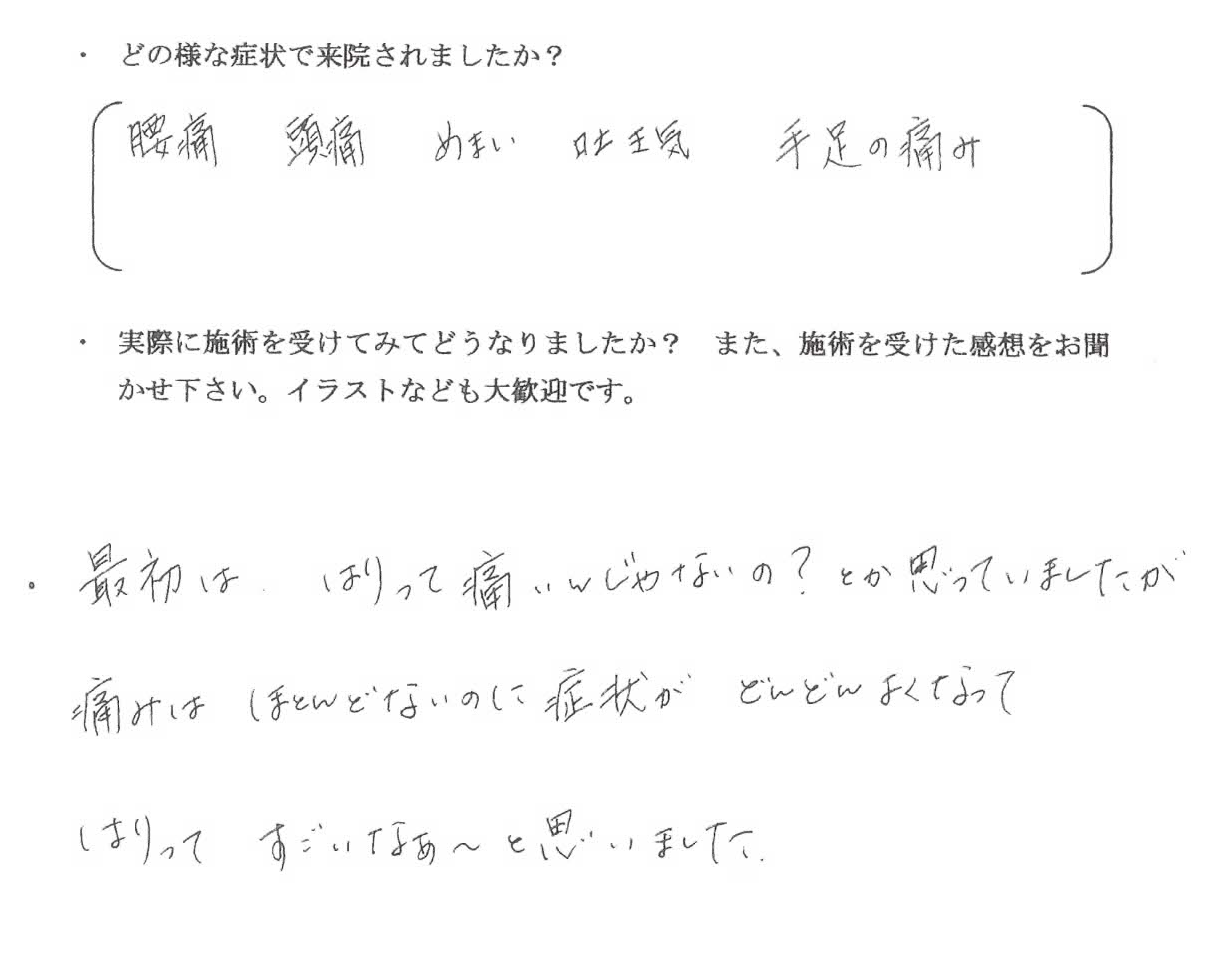 ・ どの様な症状で来院されましたか？
腰痛　頭痛　めまい　吐き気　手足の痛み
・ 実際に施術を受けてみてどうなりましたか？　また、施術を受けた感想をお聞
かせ下さい。イラストなども大歓迎です。
・最初は、はりって痛いんじゃないの？とか思っていましたが
痛みは ほとんどないのに 症状が どんどん よくなって
はりって すごいなぁ～と思いました。